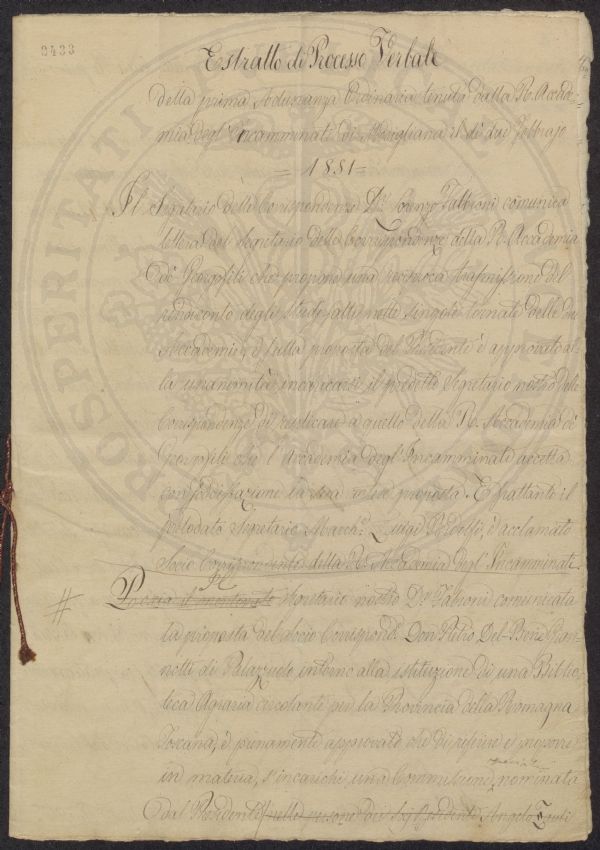 8433
Estratto di Processo Verbale
della prima Adunanza Ordinaria tenuta dalla R. Accade=
mia degl'Incamminati di Modigliana il dì due Febbrajo
= 1881 =
Il Segretario delle Corrispondenze Dr. Fabroni comunica
lettera del Segretario delle Corrispondenze della R. Accademia
de' Georgofili che propone una reciproca trasmissione del
rendiconto degli studi fatti nelle singole tornate delle due
Accademie, e sulla proposta del Presidente è approvato al=
la unanimità incaricarsi il predetto Segretario nostro delle
Corrispondenze di replicare a quello della R. Accademia de'
Georgofili che l'Accademia degl'Incamminati accetta
con la proposta. E frattanto il
prelodato Segretario March. Luigi Ridolfi, è acclamato
Socio Corrispondente della R. Accademia degl'Incamminati.
Il
Segretario nostro Dr. Fabroni comunicata
la proposta del Socio Corrispond. Don Pietro Del-Bene Gian=
notti di Palazzuolo intorno alla istituzione di una Biblio=
teca Agraria circolante per la Provincia della Romagna
Toscana, è pienamente approvato che di riferire e proporre
in materia, s'incarichi una Commissione nominata
dal Presidente nelle persone dei Sigg. Presidente Angelo